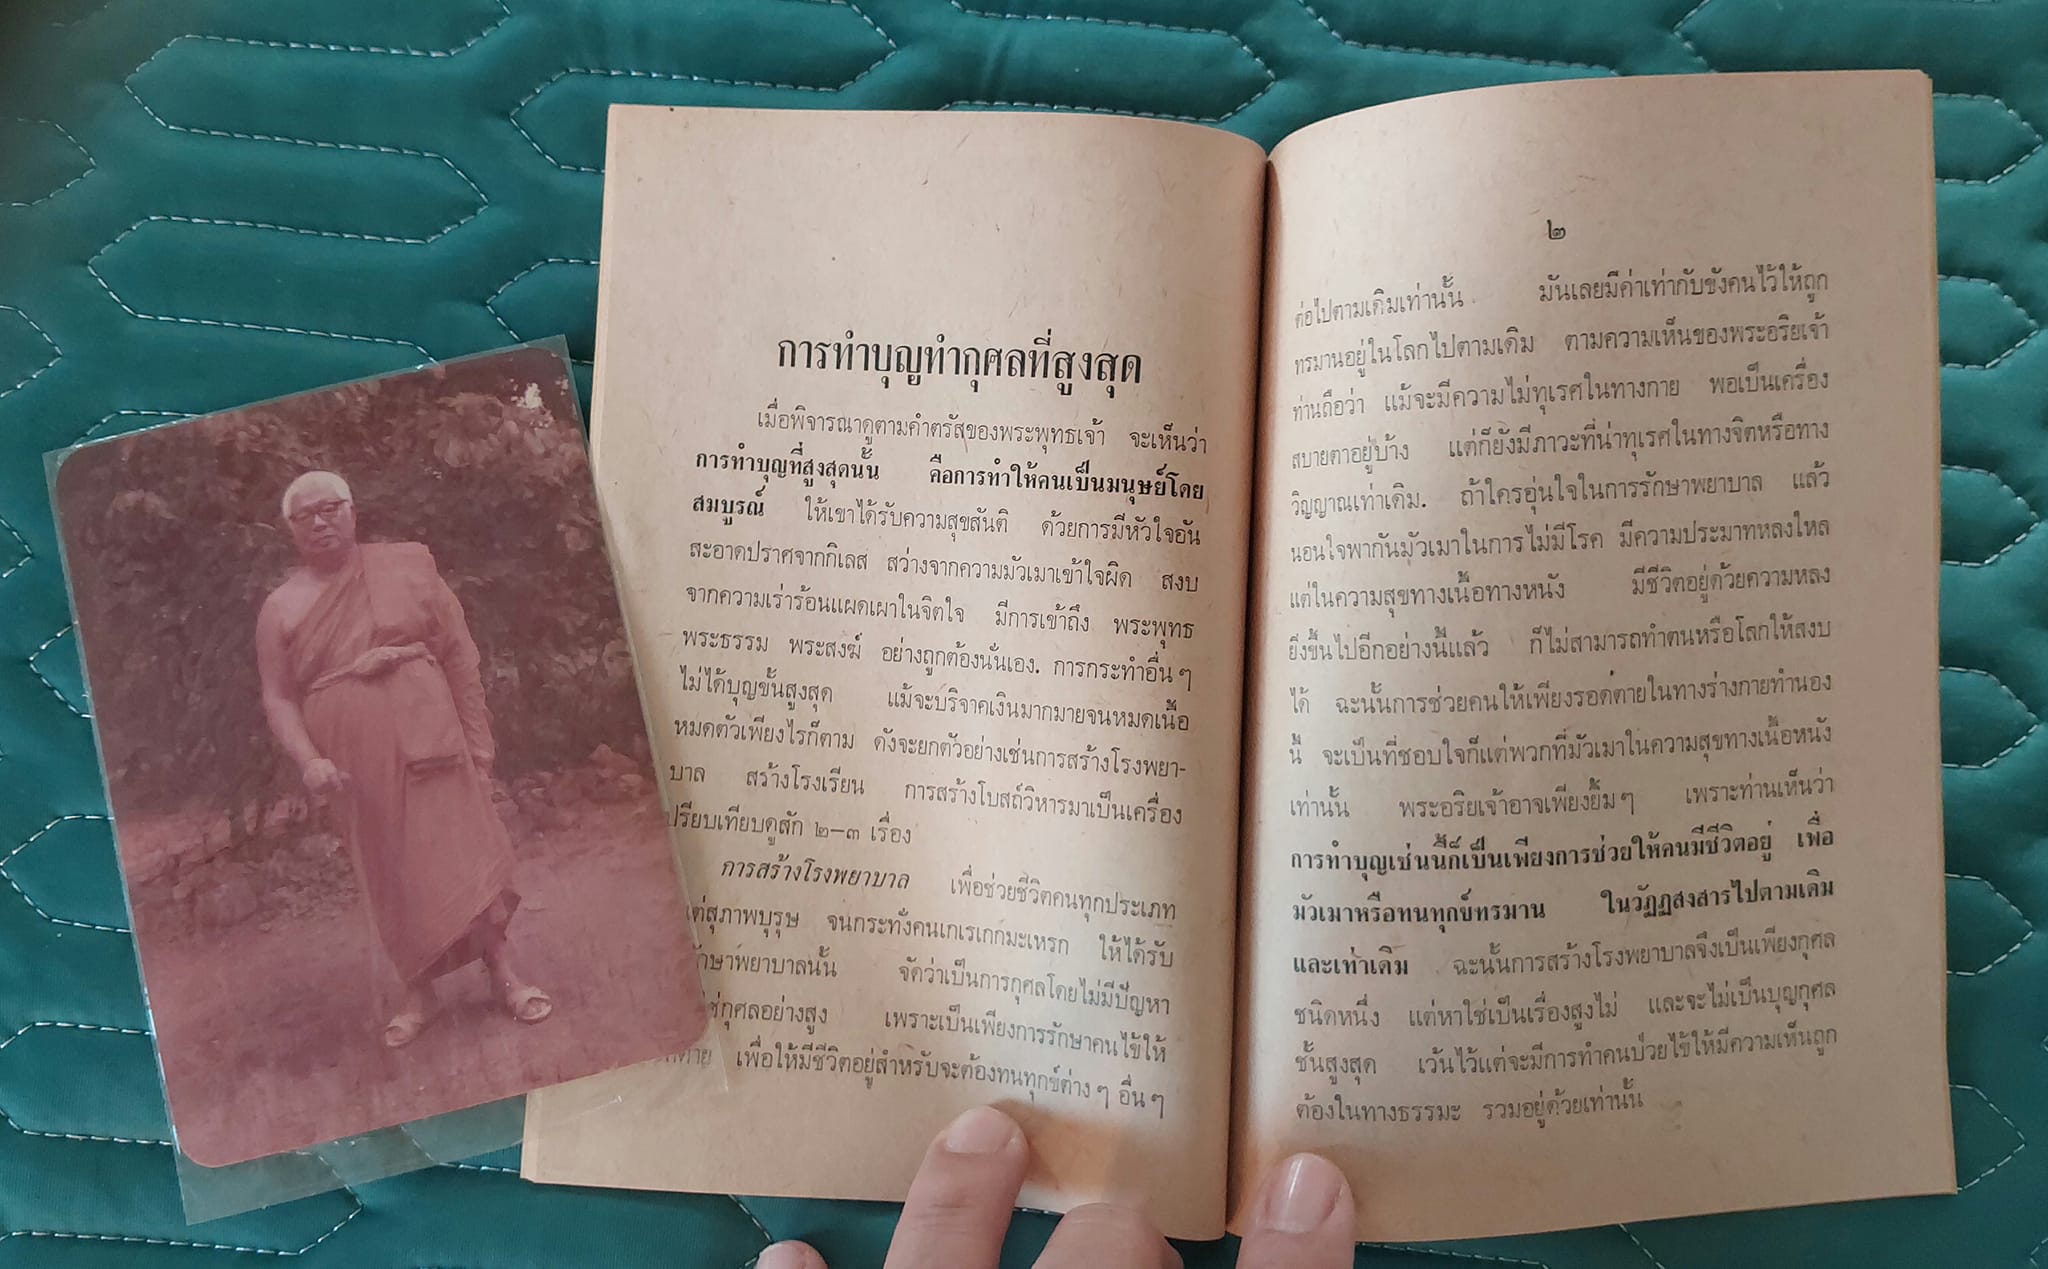 การทำบุญทำกุศลที่สูงสุด
เมื่อพิจารณาดูตามคำตรัสของพระพุทธเจ้า จะเห็นว่า
การทำบุญที่สูงสุดนั้น คือการทำให้คนเป็นมนุษย์โดย
สมบูรณ์ ให้เขาได้รับความสุขสันติ ด้วยการมีหัวใจอัน
สะอาดปราศจากกิเลส สว่างจากความมัวเมาเข้าใจผิด สงบ
จากความเร่าร้อนแผดเผาในจิตใจ มีการเข้าถึง พระพุทธ
พระธรรม พระสงฆ์ อย่างถูกต้องนั่นเอง. การกระทำอื่นๆ
ไม่ได้บุญขั้นสูงสุด แม้จะบริจาคเงินมากมายจนหมดเนื้อ
หมดตัวเพียงไรก็ตาม ดังจะยกตัวอย่างเช่นการสร้างโรงพยา-
บาล สร้างโรงเรียน การสร้างโบสถ์วิหารมาเป็นเครื่อง
เปรียบเทียบดูสัก ๒–๓ เรื่อง
การสร้างโรงพยาบาล เพื่อช่วยชีวิตคนทุกประเภท
แต่สุภาพบุรุษ จนกระทั่งคนเกเรเกกมะเหรก ให้ได้รับ
รักษาพยาบาลนั้น จัดว่าเป็นการกุศลโดยไม่มีปัญหา
ใช่กุศลอย่างสูง เพราะเป็นเพียงการรักษาคนไข้ให้
ตาย เพื่อให้มีชีวิตอยู่สำหรับจะต้องทนทุกข์ต่างๆ อื่นๆ
๒
ต่อไปตามเดิมเท่านั้น มันเลยมีค่าเท่ากับขังคนไว้ให้ถูก
ทรมานอยู่ในโลกไปตามเดิม ตามความเห็นของพระอริยเจ้า
ท่านถือว่า แม้จะมีความไม่ทุเรศในทางกาย พอเป็นเครื่อง
สบายตาอยู่บ้าง แต่ก็ยังมีภาวะที่น่าทุเรศในทางจิตหรือทาง
วิญญาณเท่าเดิม. ถ้าใครอุ่นใจในการรักษาพยาบาล แล้ว
นอนใจพากันมัวเมาในการไม่มีโรค มีความประมาทหลงใหล
แต่ในความสุขทางเนื้อทางหนัง มีชีวิตอยู่ด้วยความหลง
ยิ่งขึ้นไปอีกอย่างนี้แล้ว ก็ไม่สามารถทำตนหรือโลกให้สงบ
ได้ ฉะนั้นการช่วยคนให้เพียงรอดตายในทางร่างกายทำนอง
นี้ จะเป็นที่ชอบใจก็แต่พวกที่มัวเมาในความสุขทางเนื้อหนัง
เท่านั้น พระอริยเจ้าอาจเพียงยิ้มๆ เพราะท่านเห็นว่า
การทำบุญเช่นนี้ก็เป็นเพียงการช่วยให้คนมีชีวิตอยู่ เพื่อ
มัวเมาหรือทนทุกข์ทรมาน ในวัฏฏสงสารไปตามเดิม
และเท่าเดิม ฉะนั้นการสร้างโรงพยาบาลจึงเป็นเพียงกุศล
ชนิดหนึ่ง แต่หาใช่เป็นเรื่องสูงไม่ และจะไม่เป็นบุญกุศล
ชั้นสูงสุด เว้นไว้แต่จะมีการทำคนป่วยไข้ให้มีความเห็นถูก
ต้องในทางธรรมะ รวมอยู่ด้วยเท่านั้น